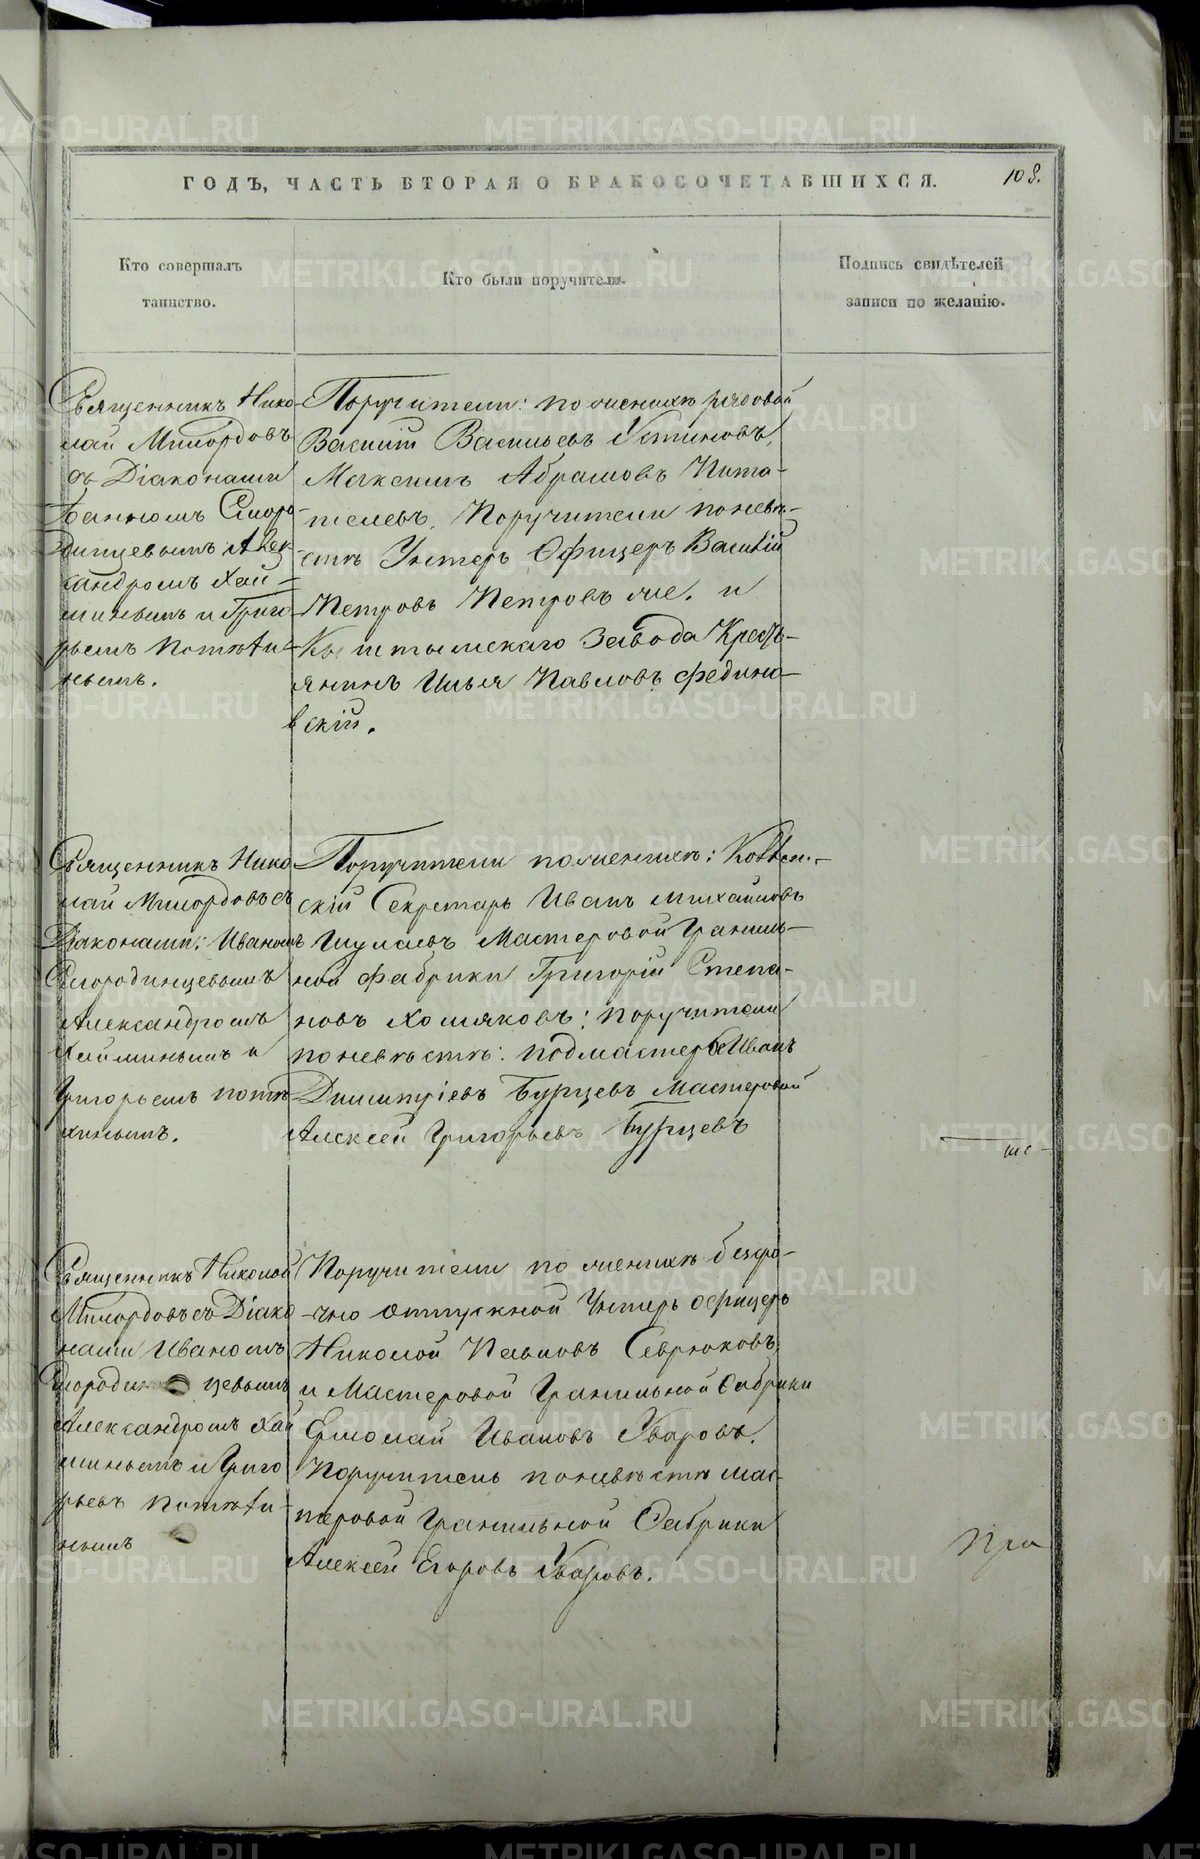 ГОДЪ, ЧАСТЬ ВТОРАЯ О БРАКОСОЧЕТАВШИХСЯ.
108.
Кто совершалъ
таинство.
Кто были поручители.
Подпись свидѣтелей
записи по желанію.
Священникъ Нико-
лай Милордовъ
съ Діаконами
Іваномъ Сморо-
динцевымъ Алек-
сандромъ Хай-
минымъ и Григо
рьемъ Потѣхи-
нымъ.
Поручители: по женихѣ рядовой
Василій Васильевъ Устиновъ,
Максимъ Абрамовъ Пита-
телевъ, Поручители поневѣ-
стѣ Унтеръ Офицеръ Василій
Петровъ Петровъ же. и
Кыштымскаго Завода Кресть-
янинъ Илья Павловъ Федино-
вскій.
Священникъ Нико
лай Милордовъ съ
Діаконами: Иваномъ
Смородинцевымъ
Александромъ
Хайминымъ и
Григорьемъ Потѣ
хинымъ.
Поручители по женихѣ:
скій Секретарь Иванъ Михайловъ
Шулаевъ Мастеровой Граниль-
ной фабрики Григорій Степа-
новъ Хомяковъ; поручители
поневѣстѣ: подмастерье Иванъ
Димитріевъ Бурцевъ Мастеровой
Алексей Григорьевъ Бурцевъ
Священникъ Николай
Милордовъ съ Діако
нами Иваномъ
Смородинцевымъ
Александромъ Хай
минымъ и Григо
рьевъ Потѣхи-
нымъ
Поручители по женихѣ безсро-
чно отпускной Унтеръ офицеръ
Николай Павловъ Севрюковъ,
и Мастеровой Гранильной Фабрики
Ермолай Ивановъ Уваровъ.
Поручитель поневѣстѣ мас-
теровой Гранильной Фабрики
Алексей Егоровъ Уваровъ.
При
METRIKI.GASO-URAL.RU